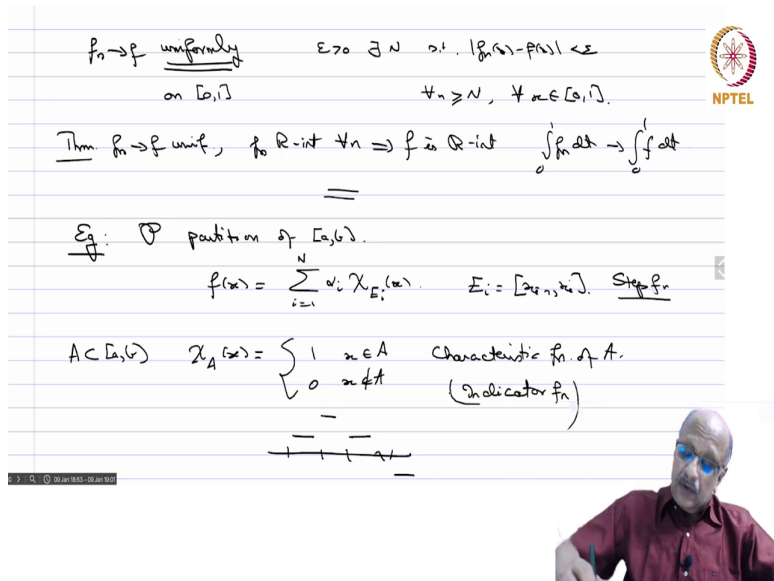 fn → f uniformly ε>0 ∃ N s.t. |fn(x)-f(x)| < ε
on [0,1] ∀n ≥ N, ∀ x ∈ [0,1].
NPTEL
Thm. fn → f unif, fn R-int ∀n ⇒ f is R-int ∫₀¹ fn dt → ∫₀¹ f dt
Eg: P partition of [a,b].
f(x) = Σᵢ₌₁ᴺ αᵢ χ_Eᵢ(x). Eᵢ = [xᵢ₋₁, xᵢ]. Step fn
A ⊂ [a,b] χ_A(x) = { 1 x ∈ A Characteristic fn. of A.
0 x ∉ A (Indicator fn)
09 Jan 18:53 - 09 Jan 19:01